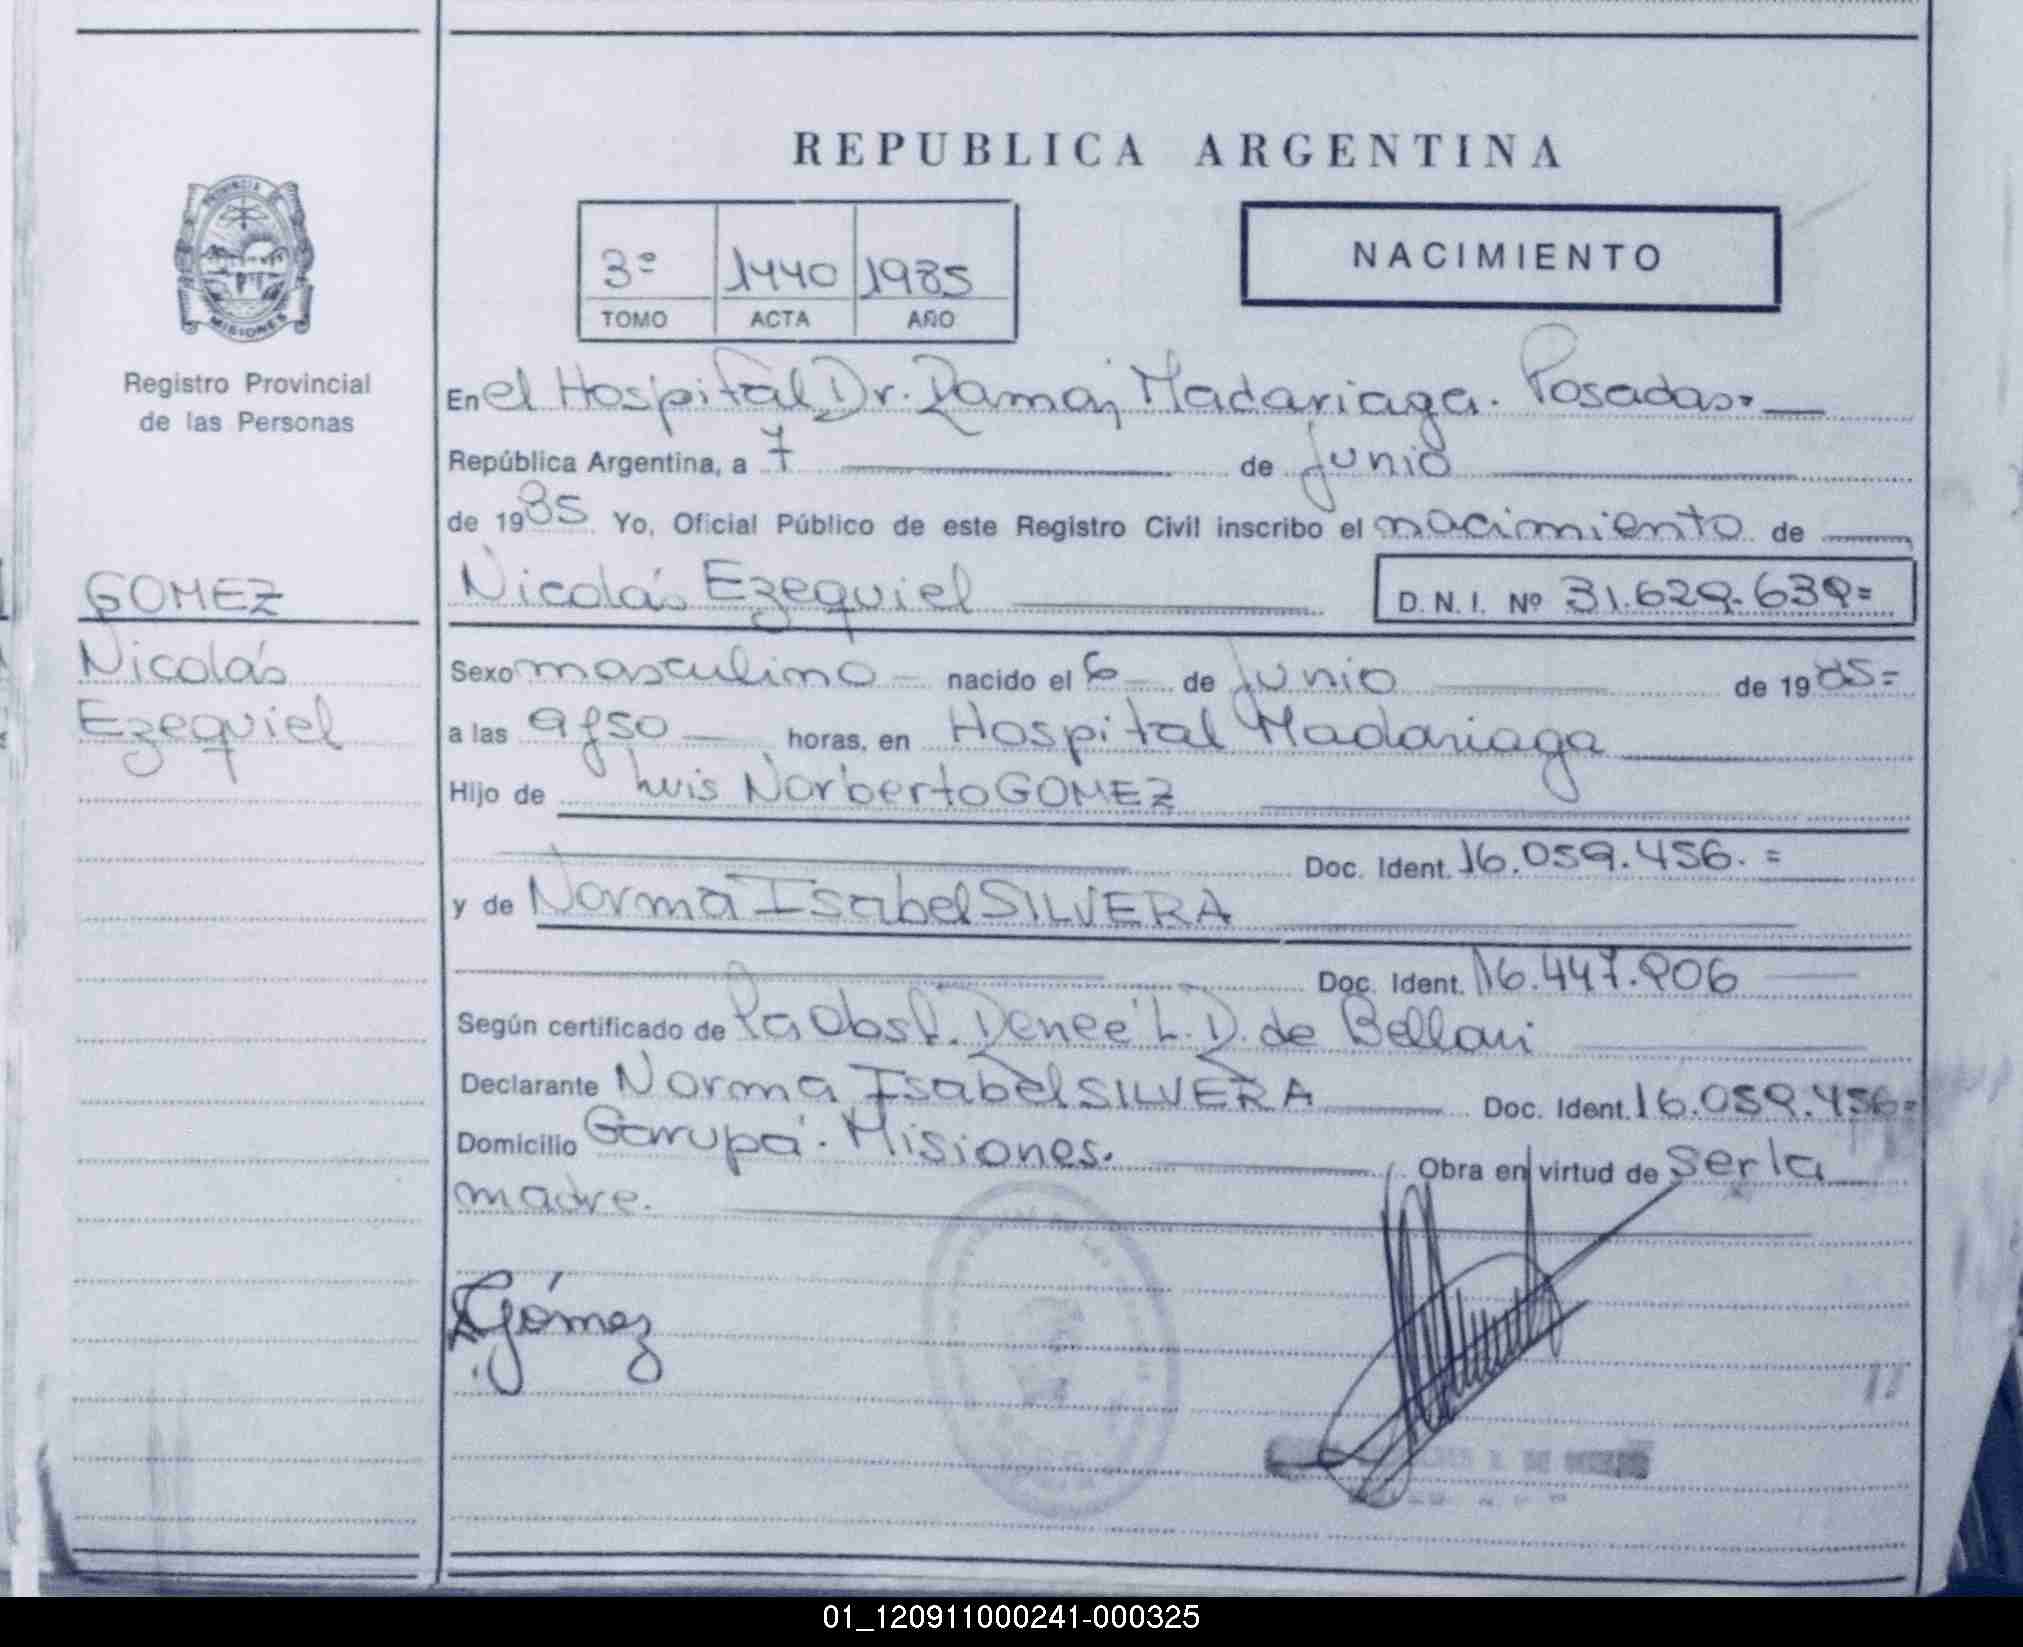 REPUBLICA ARGENTINA
PROVINCIA
MISIONES
Registro Provincial
de las Personas
3º 1440 1985
TOMO ACTA AÑO
NACIMIENTO
En el Hospital Dr. Ramón Madariaga. Posadas.
República Argentina, a 7 de Junio
de 1985 Yo, Oficial Público de este Registro Civil inscribo el nacimiento de
GOMEZ
Nicolás
Ezequiel
Nicolás Ezequiel D.N.I. Nº 31.629.639=
Sexo masculino nacido el 6 de Junio de 1985=
a las 9y50 horas, en Hospital Madariaga
Hijo de Luis Norberto GOMEZ
Doc. Ident. 16.059.456.=
y de Norma Isabel SILVERA
Doc. Ident. 16.447.906
Según certificado de la Obst. Renee L. D. de Bellani
Declarante Norma Isabel SILVERA Doc. Ident. 16.059.456=
Domicilio Garupá. Misiones. Obra en virtud de ser la
madre.
Gómez
01_120911000241-000325